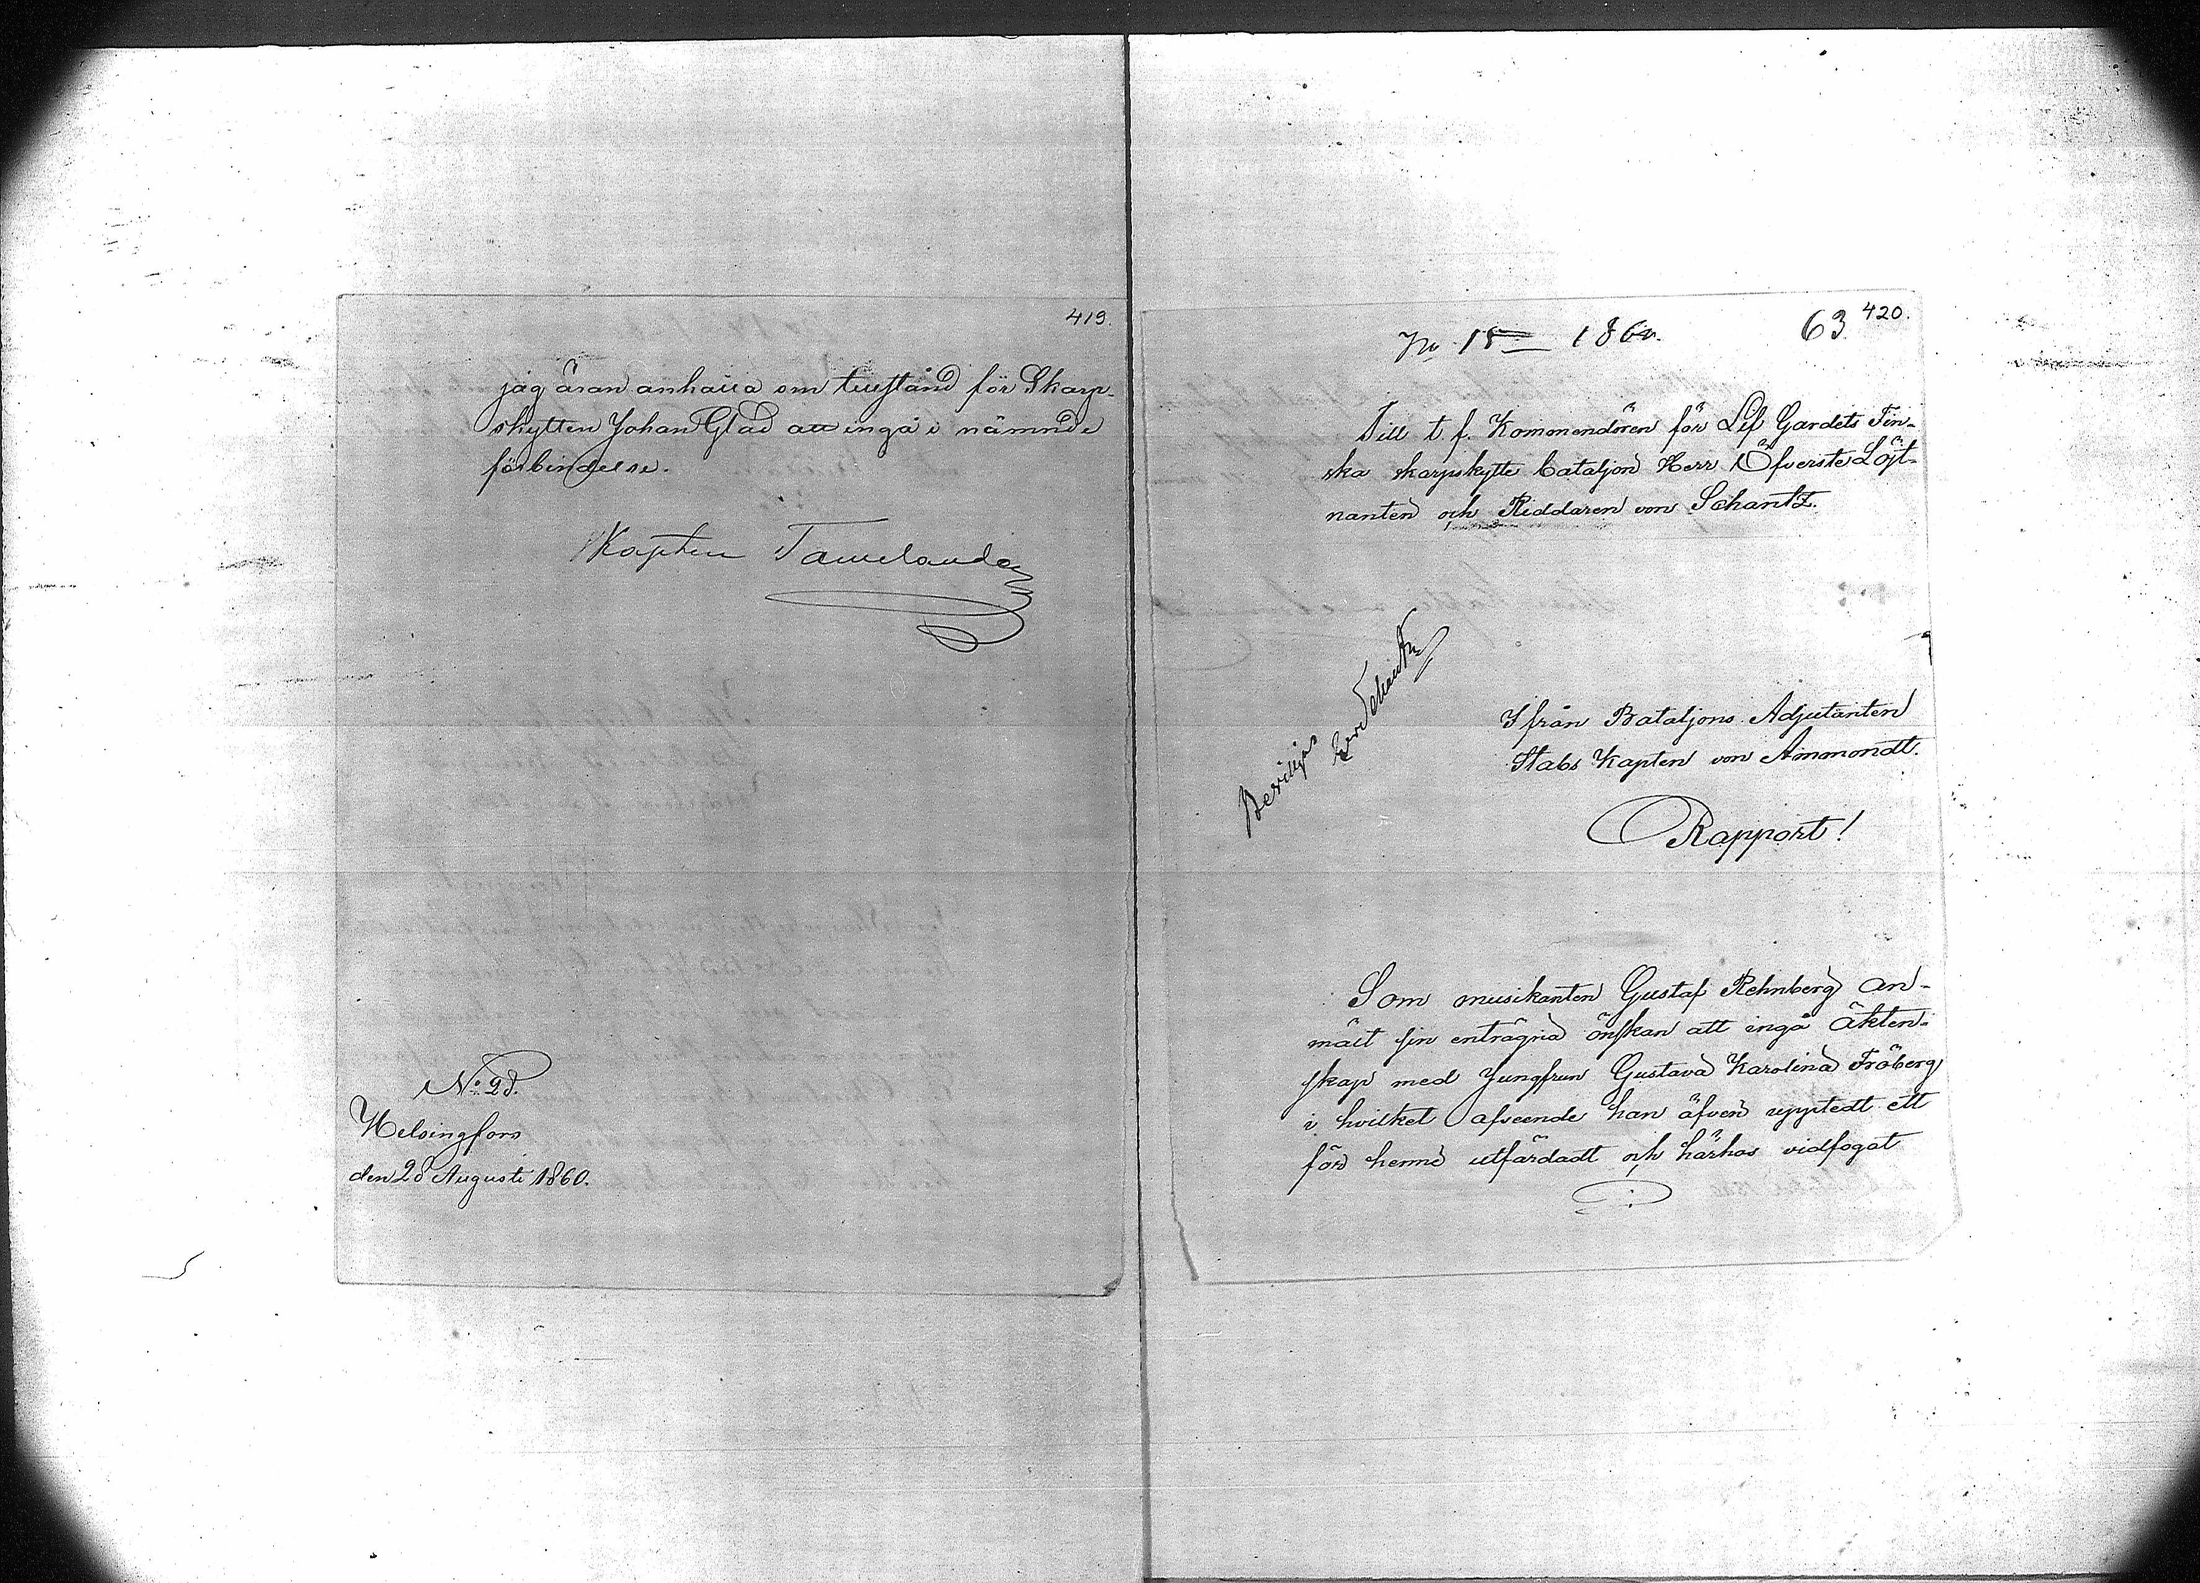 419.
jag äran anhålla om tillstånd för Skarp-
skytten Johan Glad att ingå i nämnde
förbindelse.
Kapten Tamelander
No 28.
Helsingfors
den 28 Augusti 1860.
420.
63
No 15 1860.
Till t. f. Kommendören för Lif Gardets Fin-
ska skarpskytte bataljon Herr Öfverste Löjt-
nanten och Riddaren von Schantz.
Beviljas
von Schantz
Ifrån Bataljons Adjutanten
Stabs Kapten von Ammondt.
Rapport!
Som musikanten Gustaf Rehnberg an-
mält sin enträgna önskan att ingå äkten-
skap med Jungfrun Gustava Karolina Fröberg
i hvilket afseende han äfven upptedt ett
för henne utfärdadt och härhos vidfogat